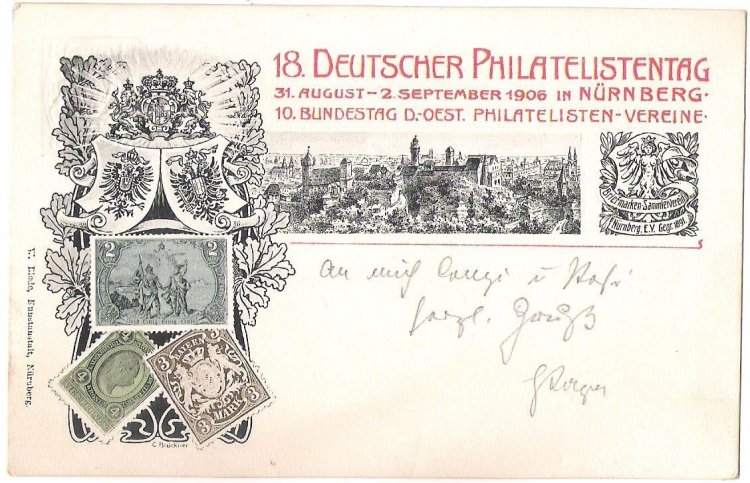 18. DEUTSCHER PHILATELISTENTAG
31. AUGUST-2. SEPTEMBER 1906 IN NÜRNBERG·
10. BUNDESTAG D.-OEST. PHILATELISTEN-VEREINE·
Briefmarken-Sammlerverein
Nürnberg. E.V. Gegr. 1891
2 2
Seid Einig Einig Einig
4 4
BAYERN
3 3
3 3
MARK
C. Brückner
Nürnberg.
An mich
herzl. Gruß